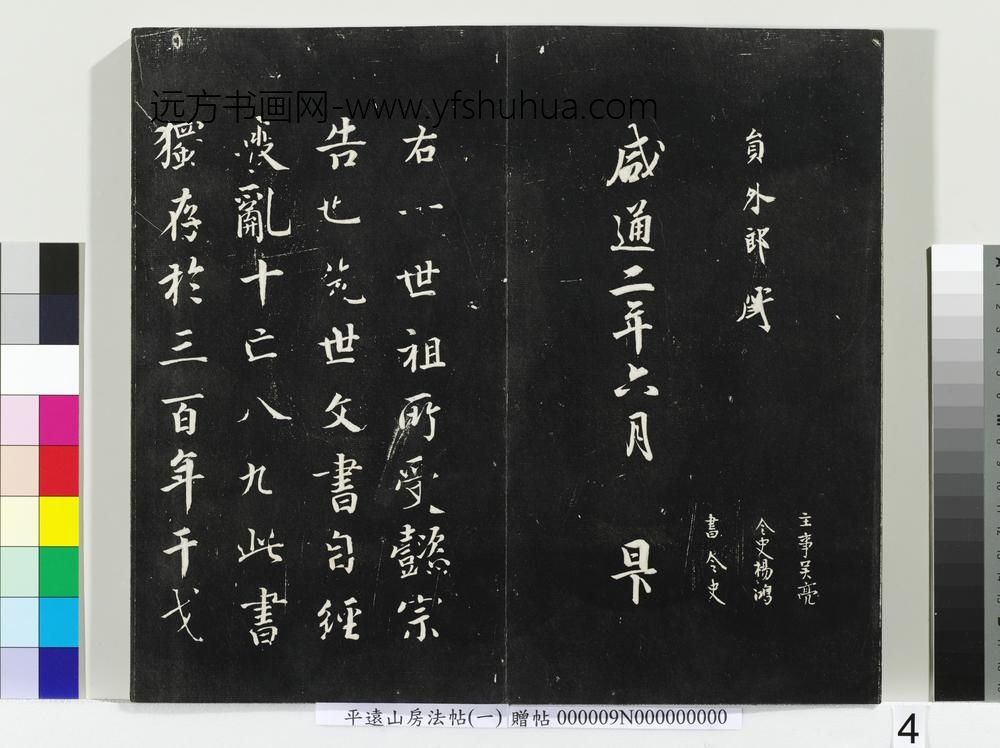 远方书画网-www.yfshuhua.com
員外郎
主事吴亮
令史楊鴻
書令史
咸通二年六月 日下
右八世祖所受懿宗
告也世文書自經
喪亂十亡八九此書
獨存於三百年干戈
平遠山房法帖(一) 贈帖 000009N000000000
4